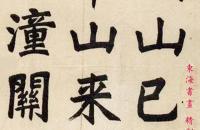 山已
山来
潼關
東海書畫 精